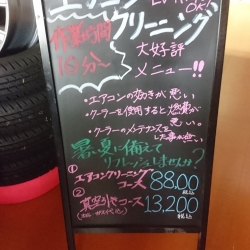 エアコン
クリーニング
作業時間
10分〜
大好評
メニュー!!
・エアコンの効きが悪い
・クーラーを使用すると燃費が
悪い。
・クーラーのメンテナンスを
した事が無い
暑い夏に備えて
リフレッシュしませんか?
① エアコンクリーニング
コース 8800
税込
② 真空引きコース 13,200
税込